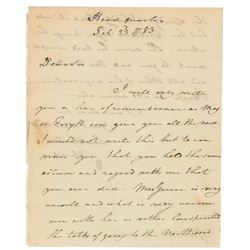 Head quarters
Feb. 23 1783
Dear Sir
I will only write
you a line of remembrance as Maj
Forsyth can give you all the news.
I would not write this but to con
vince you that you hold the same
esteem and regard with me that
you ever did. Mrs Greene is very
unwell and what is very uncom
mon with her is rather low spirited
She talks of going to the Northward